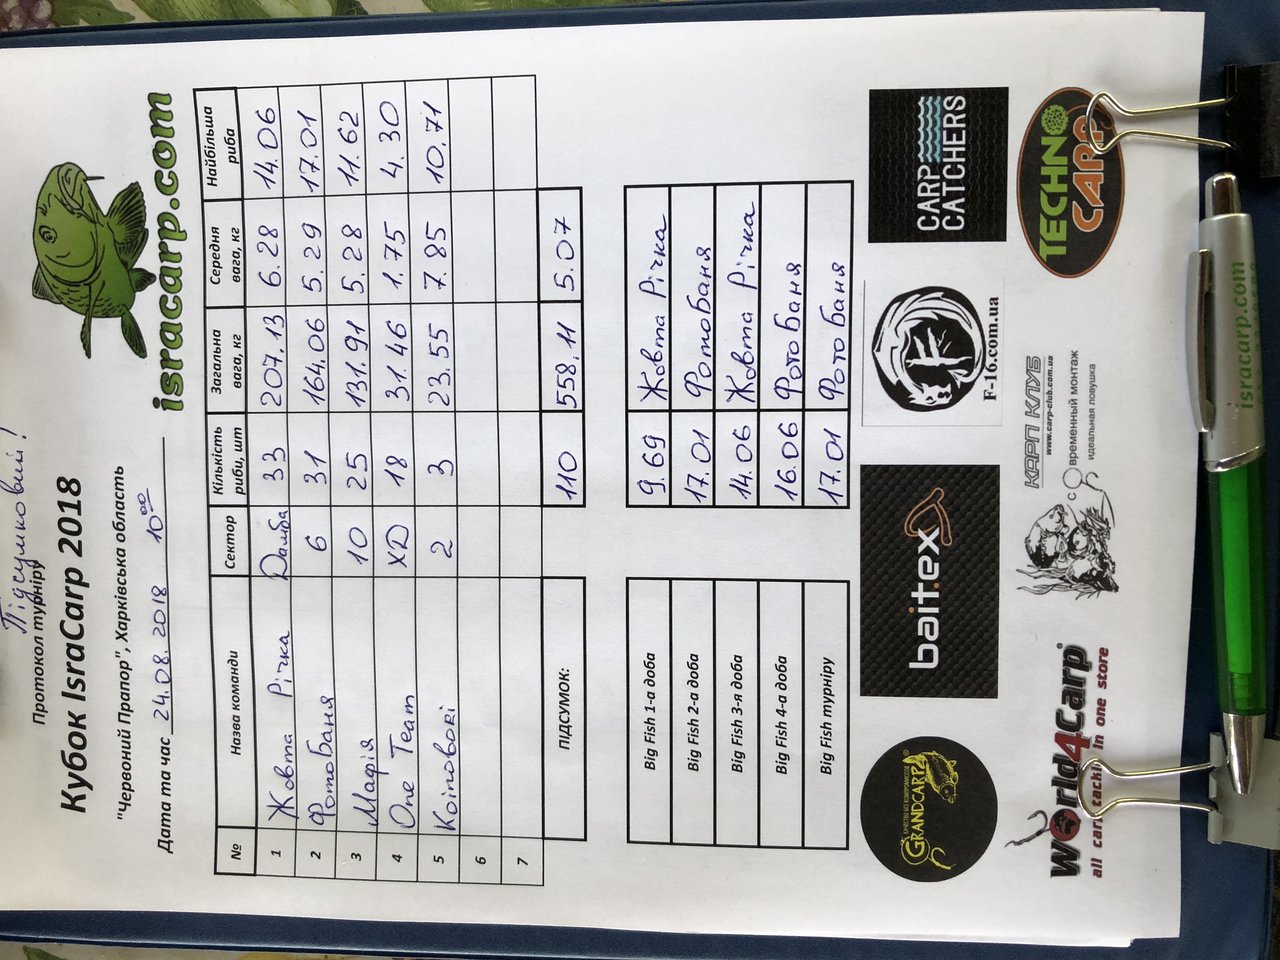 Підсумковий!
Протокол турніру
Кубок IsraCarp 2018
"Червоний Прапор", Харківська область
Дата та час 24.08.2018 10⁰⁰
isracarp.com
№ Назва команди Сектор Кількість риби, шт Загальна вага, кг Середня вага, кг Найбільша риба
1 Жовта Річка Дамба 33 207.13 6.28 14.06
2 ФотоБаня 6 31 164.06 5.29 17.01
3 Мафія 10 25 131.91 5.28 11.62
4 One Team ХD 18 31.46 1.75 4.30
5 Коіповокі 2 3 23.55 7.85 10.71
6
7
ПІДСУМОК: 110 558.11 5.07
Big Fish 1-а доба 9.69 Жовта Річка
Big Fish 2-а доба 17.01 ФотоБаня
Big Fish 3-я доба 14.06 Жовта Річка
Big Fish 4-а доба 16.06 Фото Баня
Big Fish турніру 17.01 Фото Баня
КАЧЕСТВО БЕЗ КОМПРОМИССОВ
GRANDCARP®
bait.ex
F-16.com.ua
CARP CATCHERS
World4Carp®
all carp tackle in one store
КАРП КЛУБ
www.carp-club.com.ua
современный монтаж
идеальная ловушка
TECHNO
CARP
isracarp.com